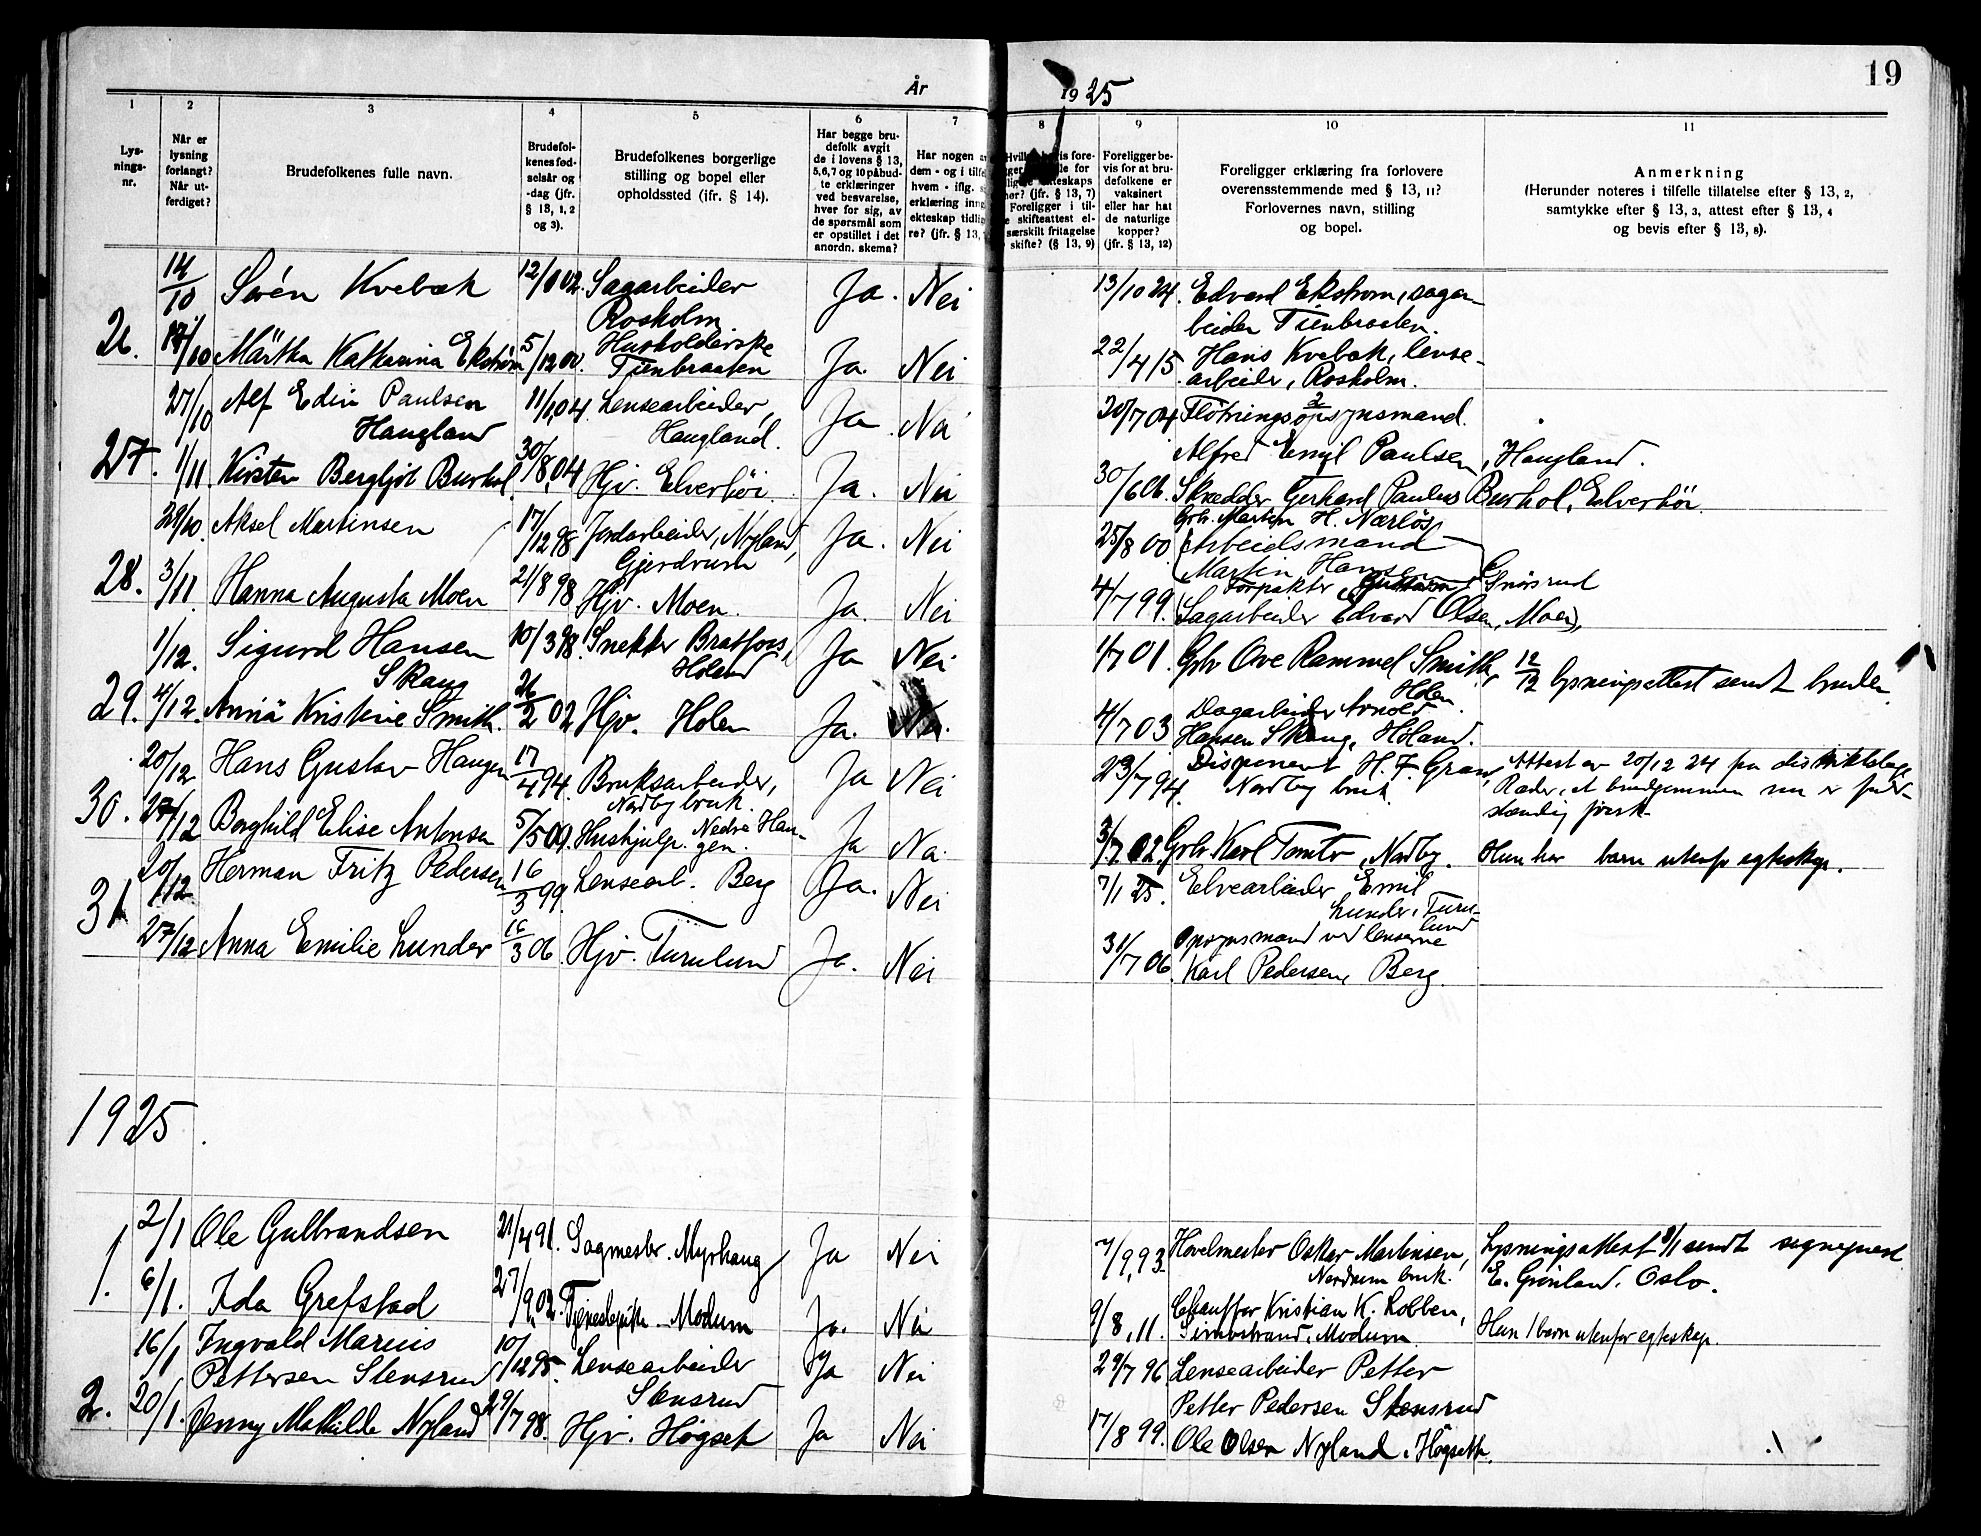 19
År 1925
1
2
3
4
5
6
7
8
9
10
11
Lys-
nings-
nr.
Når er
lysning
forlangt?
Når ut-
ferdiget?
Brudefolkenes fulle navn.
Brudefol-
kenes fød-
selsår og
-dag (jfr.
§ 13, 1, 2
og 3).
Brudefolkenes borgerlige
stilling og bopel eller
opholdssted (ifr. § 14).
Har begge bru-
defolk avgit
de i lovens § 13,
5,6,7 og 10 påbud-
te erklæringer
ved besvarelse,
hver for sig, av
de spørsmål som
er opstillet i det
anordn. skema?
Har nogen
dem - og i tilfe
hvem - iflg.
erklæring inng
ekteskap tidlig
re? (jfr. § 13,
bevis fore-
for
ekteskaps
(jfr. § 13, 7)
Foreligger i til-
e skifteattest el-
særskilt fritagelse
skifte? (§ 13, 9)
Foreligger be-
vis for at bru-
defolkene er
vaksinert
eller har hat
de naturlige
kopper?
(jfr. § 13, 12)
Foreligger erklæring fra forlovere
overensstemmende med § 13, 11?
Forlovernes navn, stilling
og bopel.
Anmerkning
(Herunder noteres i tilfelle tillatelse efter § 13, 2,
samtykke efter § 13, 3, attest efter § 13, 4
og bevis efter § 13, 8).
26.
14/10 Søren Kvebæk Sagarbeider Rosholm Ja. Nei 13/10 24. Edvard Ekstrøm, sagar-
beider Tienbraaten.
/10 Märtha Katharina Ekstrøm 5/12 00. Husholderske Tienbraaten Ja. Nei 22/4 15 Hans Kvebæk, lense-
arbeider, Rosholm.
27.
27/10 Alf Edin Paulsen Haugland 11/1 04. Lensearbeider, Haugland. Ja. Nei 20/7 04 Fløtningsopsynsmand.
Alfred Emil Paulsen, Haugland.
1/11 Kirsten Bergljot Burhol 30/8, 04 Hjv. Elverhöi. Ja. Nei 30/6 06. Skrædder Gerhard Paulus Burhol, Elverhöi.
28.
29/10. Aksel Martinsen 17/12 98 Jordarbeider, Nyland, Gjerdrum Ja. Nei 25/8 00 Grbr. Martin H. Nærlös
(Arbeidsmand
Martin Hansen
3/11 Hanna Augusta Moen 21/8 98 Hjv. Moen. Ja. Nei 4/7 99. Forpakter
(Sagarbeider Edvard Olsen, Moen),
29.
1/12. Sigurd Hansen Skaug 10/3 98. Snekker Bratfoss, Höland Ja Nei 1/7 01. Grbr Ove Rammel Smith, Holen. 12/12 lysningsattest sendt bruden
4/12. Anna Kristine Smith. 26/2 02 Hjv. Holen Ja. Nei. 4/7 03 Dagarbeider Arnold
Hansen Skaug, Höland.
30.
20/12 Hans Gustav Haugen 17/4 94. Bruksarbeider, Nordby bruk. Ja Nei 23/7 94. Disponent H. F. Gran, Nordby bruk. Attest av 20/12 24 fra distriktslæge
Ræder, at brudgommen nu er fuld-
stændig frisk.
27/12 Borghild Elise Antonsen 5/5 00. Hushjelp. Nedre Hau-
gen. Ja Nei 3/7 02. Grbr Karl Tomter, Nordby. Hun har barn utenfor egteskap.
31
20/12 Herman Fritz Pedersen 16/3 99. Lensearb. Berg Ja. Nei 7/1 25. Elvearbeider Emil
Lunder, Turu-
lund
27/12 Anna Emilie Lunder 16/3 06. Hjv. Turulund Ja. Nei 31/7 06 Opsynsmand ved lenserne
Karl Pedersen, Berg.
1925.
1.
2/1 Ole Gulbrandsen 21/4 91. Sagmester. Myrhaug Ja Nei 7/9, 93. Hövelmester Oskar Martinsen,
Nordrum bruk. Lysningsattest 9/1 sendt sogneprest
E. Grönland. Oslo.
6/1. Ida Grefstad 27/9, 02. Tjenestepike. Modum Ja. Nei 9/8, 11. Chauffør Kristian K. Lobben,
Simostrand, Modum. Hun 1 barn utenfor egteskap
2.
16/1 Ingvald Marius Pettersen Stensrud 10/12 95. Lensearbeider Stensrud Ja Nei 29/7 96. Lensearbeider Petter
Petter Pedersen Stensrud
20/1. Jenny Mathilde Nyland 29/7 98. Hjv. Högset Ja Nei 17/8 99. Ole Olsen Nyland, Högsett.